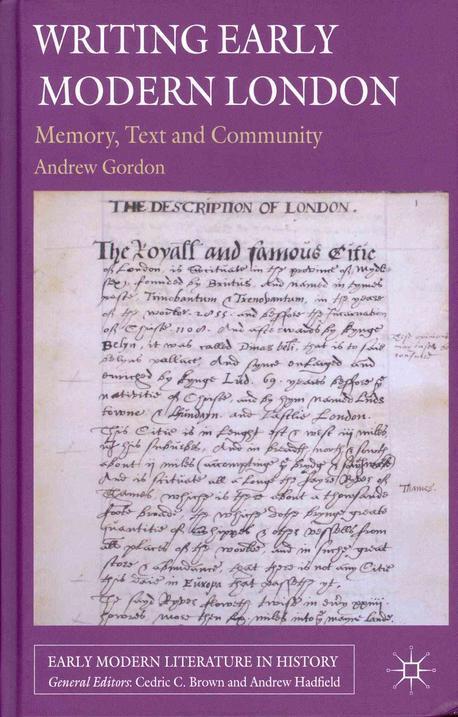 WRITING EARLY
MODERN LONDON
Memory, Text and Community
Andrew Gordon
THE DESCRIPTION OF LONDON.
The Royall and famous Citie
of London, is scituate in the province of
founded by Brutus, And named in tymes
paste, Trinobantum & Trenovantum, in the yeare
of the worlde. 2855. and beffore the Incarnation
of Christe 1108. And afterwards by kynge
Belyn, it was called that is to saie
Belyns pallace, And syns enlarged and
enriched by kynge Lud. 69. yeares beffore
nativitie of Christe and by hym named Luds
towne & and Lastlie London.
This Citie is in lenght est & west iij miles
his suburbes, And in bredth north & south
about ij miles accomptinge
And is scituate all a longe the fayre Ryver of
Thames, which is there about a thousande
foote broade, which doth brynge greate
quantitie of Shippes & other vessells from
all places of the worlde and in suche great
store & abundance, that there is not any Citie
this daie in Europa that passeth yt.
The sayd Ryver floweth twisse in every xxiiij
howres more then miles into mayne lande.
Thames.
EARLY MODERN LITERATURE IN HISTORY
General Editors: Cedric C. Brown and Andrew Hadfield